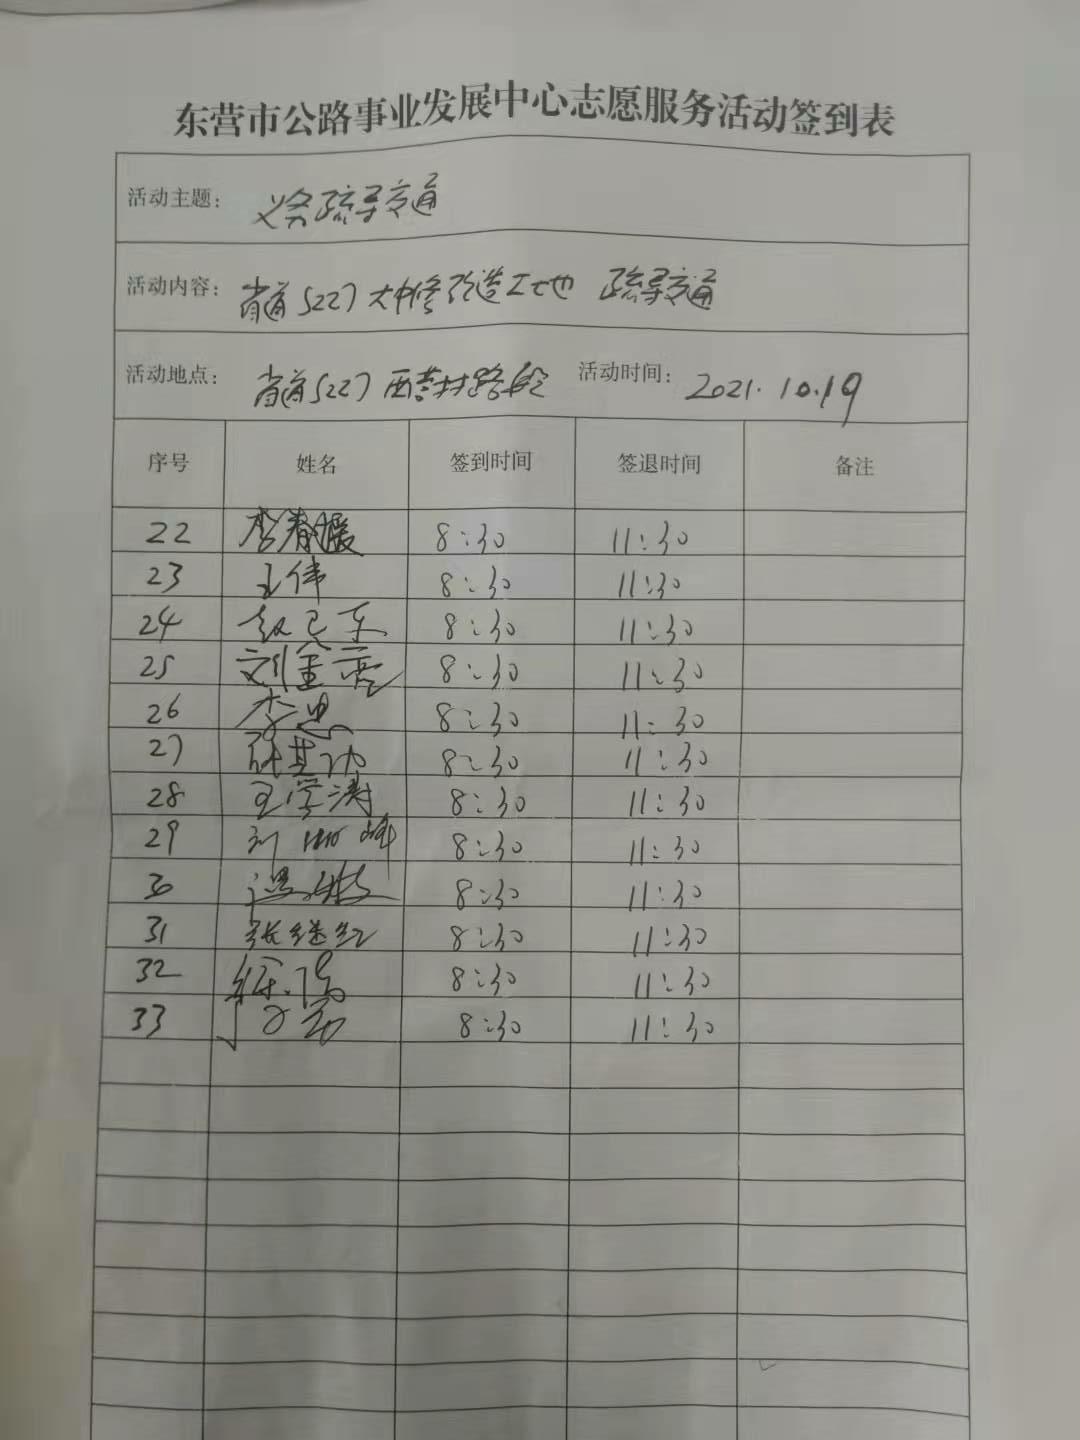 东营市公路事业发展中心志愿服务活动签到表
活动主题： 义务疏导交通
活动内容： 省道S227大中修改造工地 疏导交通
活动地点： 省道S227西营村路段 活动时间： 2021.10.19
序号 姓名 签到时间 签退时间 备注
22 李春 8:30 11:30
23 王伟 8:30 11:30
24 8:30 11:30
25 刘金亮 8:30 11:30
26 李忠 8:30 11:30
27 张其功 8:30 11:30
28 王学涛 8:30 11:30
29 刘 峰 8:30 11:30
30 8:30 11:30
31 张继红 8:30 11:30
32 8:30 11:30
33 8:30 11:30